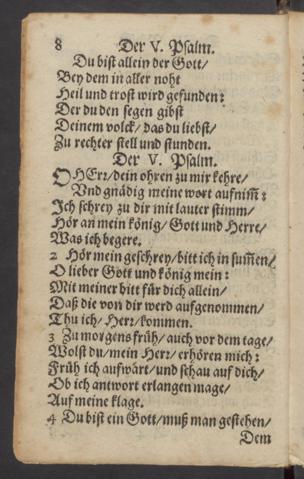 8 Der V. Psalm.
Du bist allein der Gott/
Bey dem in aller noht
Heil und trost wird gefunden:
Der du den segen gibst
Deinem volck/ das du liebst/
Zu rechter stell und stunden.
Der V. Psalm.
OHErr/ dein ohren zu mir kehre/
Vnd gnädig meine wort aufnim̅:
Ich schrey zu dir mit lauter stimm/
Hör an mein könig/ Gott und Herre/
Was ich begere.
2 Hör mein geschrey/ bitt ich in sum̅en/
O lieber Gott und könig mein:
Mit meiner bitt für dich allein/
Daß die von dir werd aufgenommen/
Thu ich/ Herr/ kommen.
3 Zu morgens früh/ auch vor dem tage/
Wolst du/ mein Herr/ erhören mich:
Früh ich aufwart/ und schau auf dich/
Ob ich antwort erlangen mage/
Auf meine klage.
4 Du bist ein Gott/ muß man gestehen/
Dem